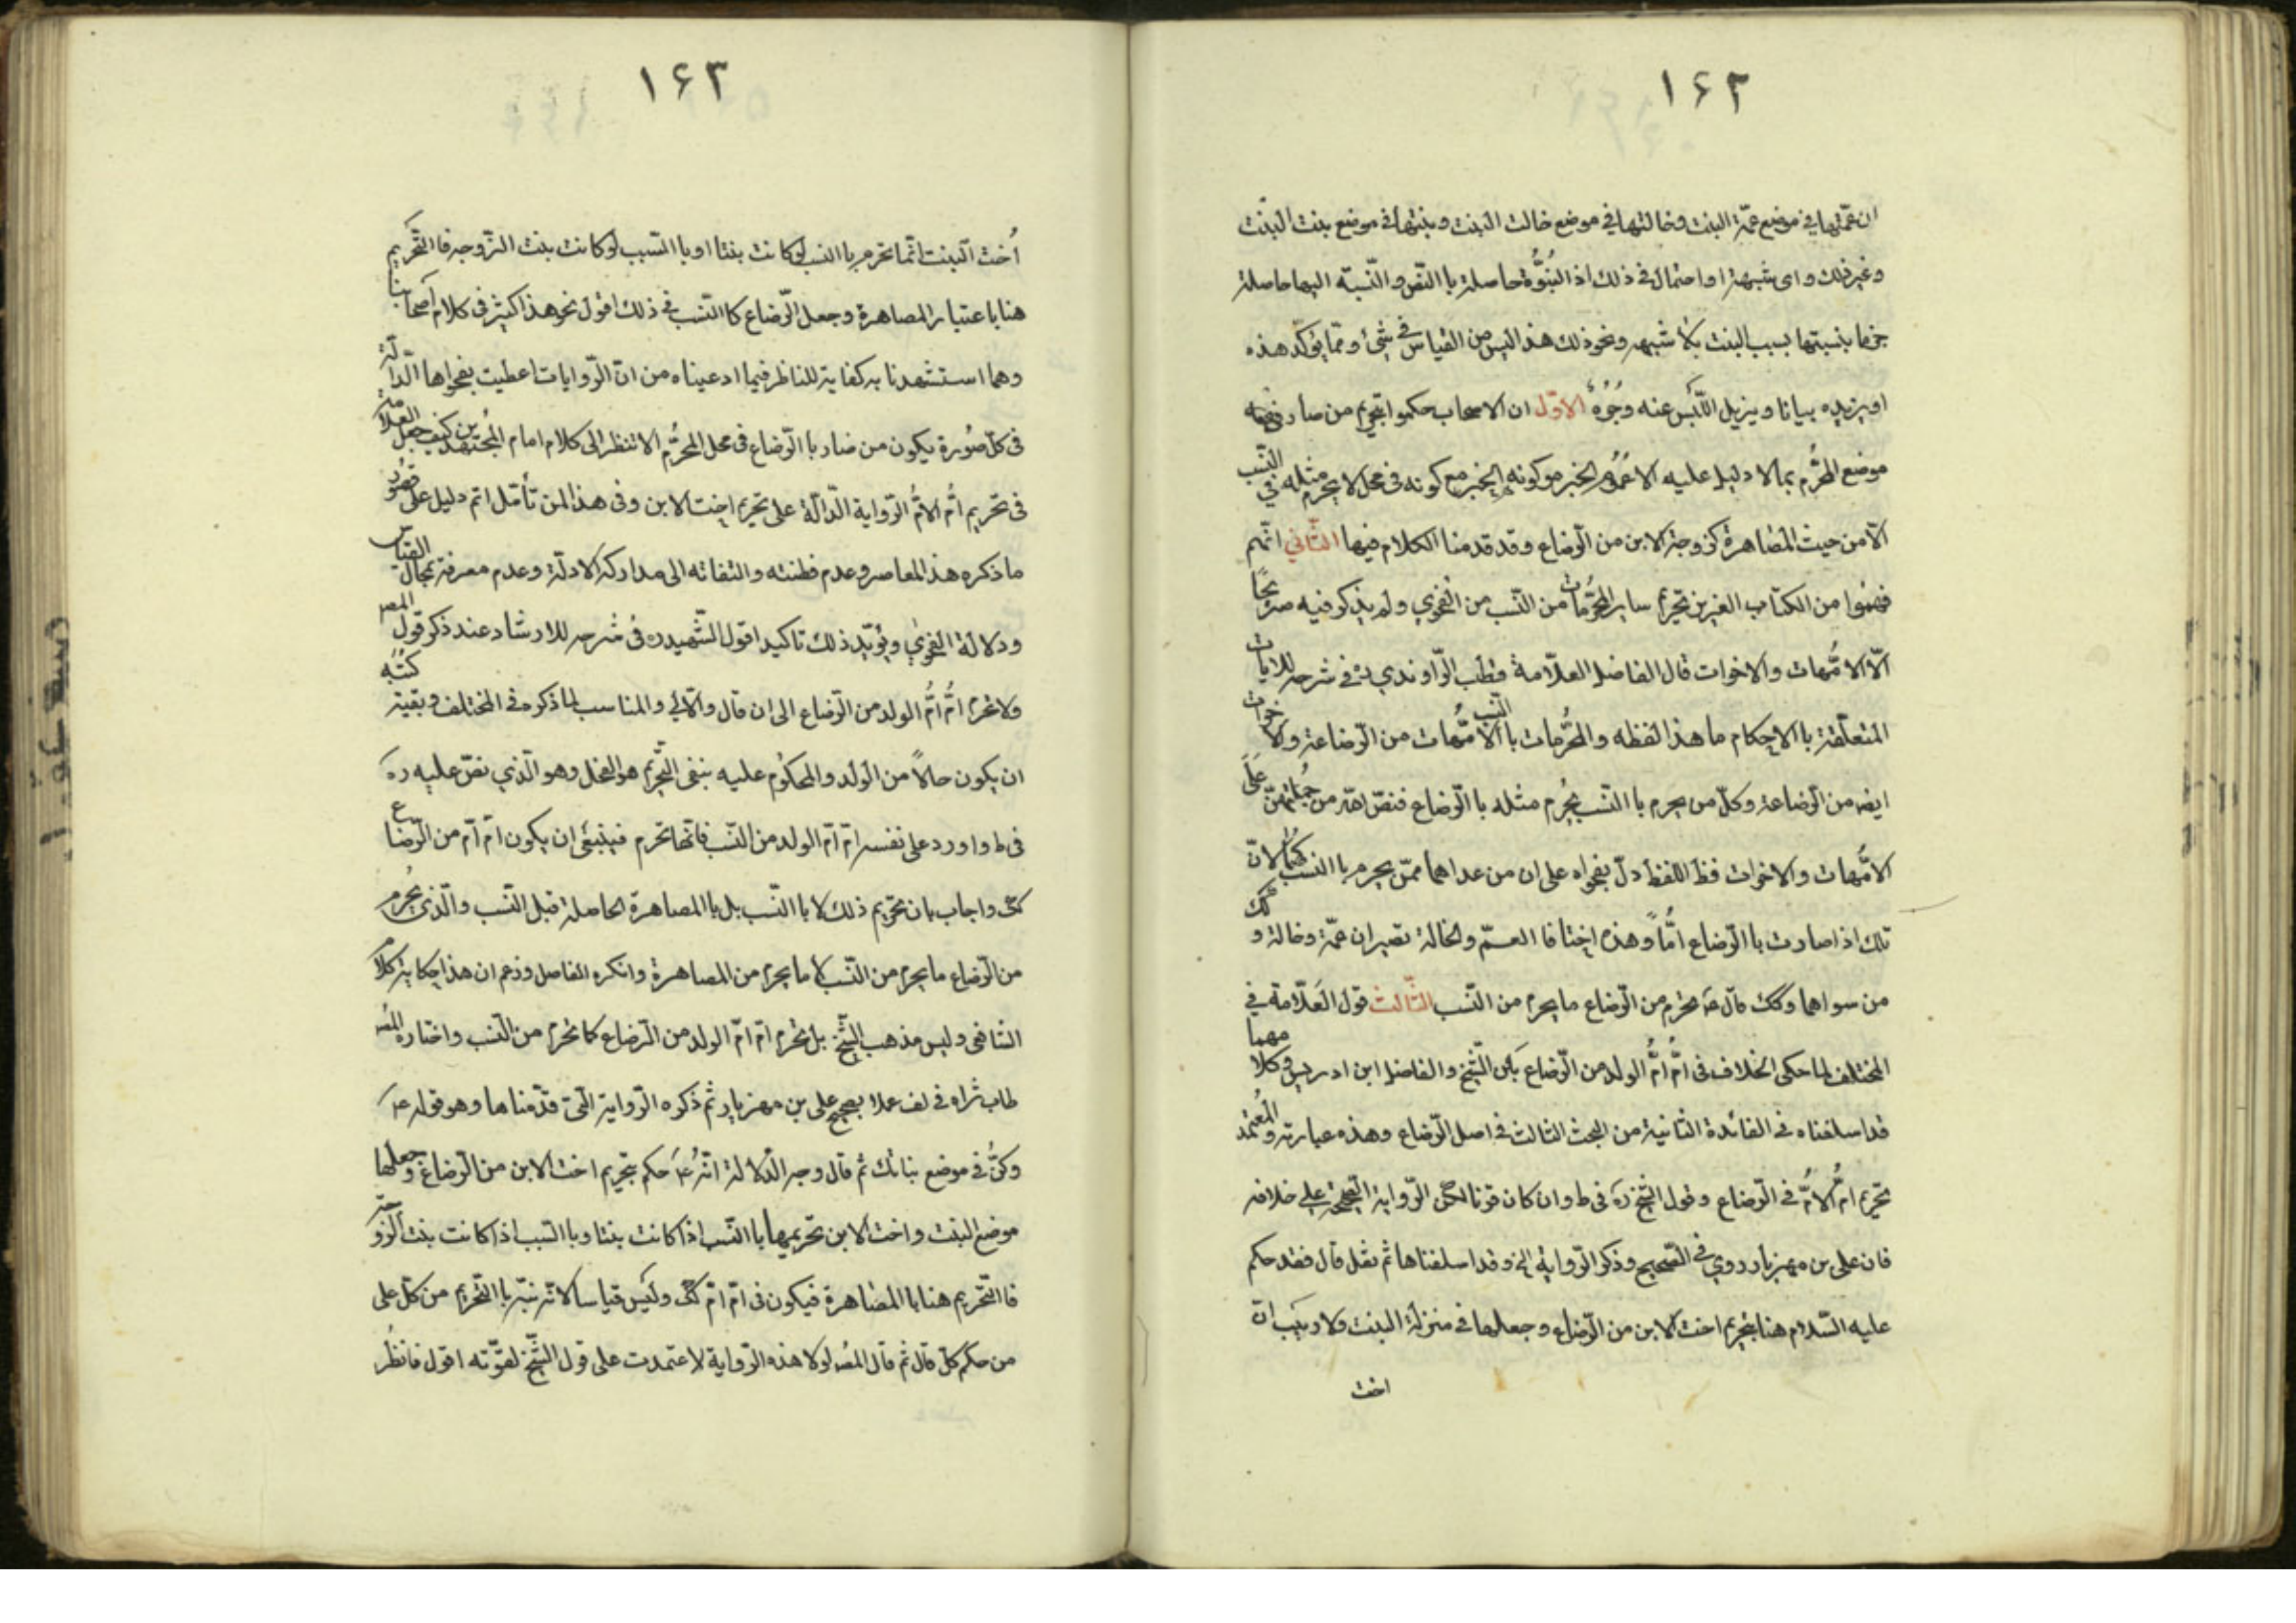 ١٤٢
ان عمّتها في موضع عمّة البنت وخالتها في موضع خالت البنت وبنتها في موضع بنت البنت
وغير ذلك واى شبهة او احتمال في ذلك اذ البُنوُّة حاصلة باالنّص والنّسبته اليها حاصلة
جزما بنسبتها بسبب البنت بلا شبهه ونحو ذلك هذا ليس من القياس في شئ وممّا يؤكّد هذه
او يزيده بيانا ويزيل اللّبس عنه وجُوُهٌ الاوّل ان الاصحاب حكموا بتحريم من صار
موضع المحرُّم بما لا دليل عليه الا عموُم الخبر مع كونه في محل لا يحرم مثله في النّسب
الّا من حيث المصاهرة كزوجة الابن من الرّضاع وقد قدمنا الكلام فيها الثّاني انّهم
فهموا من الكتاب العزيز تحريم ساير المحرّمات من النّسب من الفحوي ولم يذكر فيه صريحًا
الّا الامّهات والاخوات قال الفاضل العلّامة قطب الرّاوندي في شرحه للايات
المتعلّقة باالاحكام ما هذا لفظه والمحرُّمات باالنسب الامّهات من الرّضاعة والاخوات
ايضه من الرّضاعة وكلّ من يحرم باالنّسب يحُرم مثله باالرّضاع فنصّ الله من جُملتهنّ عَلَى
الامّهات والاخوات فظ اللفظ دلّ بفحواه على ان من عداهما ممّن يحرم باالنسب كهُما لانّ
تلك اذا صارت باالرّضاع امُّاً وهذه اختا فا العمّ والخالة تصيران عمّة وخالة و كك
من سواهما وكك قال صَ يحرم من الرّضاع ما يحرم من النّسب الثّالث قول العَلّامة في
المختلف لما حكى الخلاف في امُّ امُّ الولد من الرّضاع بَين الشّيخ والفاضل ابن ادريس وكلامهما
قد اسلفناه في الفائدة الثانية من البحث الثالث في اصل الرّضاع وهذه عبارته والمُعتمد
تحريم امُّ الامُّ في الرّضاع وقول الشّيخ رَه في ط وان كان قويّا لكن الرّواية الصّحيحة على خلافه
فان على بن مهزيار روي في الصّحيح وذكر الرّواية الخ وقد اسلفناها ثم نقل قال فقد حكم
عليه السّلام هنا بتحريم اخت الابن من الرّضاع وجعلها في منزلة البنت ولا ريَب انّ
اخت
١٤٣
أُخت البنت انّما تحرم باالنسب لو كانت بنتا او باالسّبب لو كانت بنت الزّوجه فاالتّحريم
هنا باعتبار المصاهرة وجعل الرّضاع كاالنّسب في ذلك اقول نحو هذا كثير في كلام اصحابنا
وهما استشهدنا به كفاية للناظر فيما ادعيناه من انّ الرّوايات اعطيت بفحواها الدّالّة
في كلّ صوُرة يكون من صار باالرّضاع في محل المحرُّم الا تنظر الى كلام امام المُجتهدين كيف جعل العلّامة
في تحريم امُّ الامُّ الرّواية الدّالّة على تحريم اخت الابن وفى هذا لمن تأمّل اتم دليل على قصُور
ما ذكره هذا المعاصر وعدم فطنته والتفاته الى مدارك الادلّة وعدم معرفته بمجال القياس
ودلالة الفحوَي ويؤيّد ذلك تاكيدا قول الشّهيد ره في شرحه للارشاد عند ذكر قول المصر
ولا تحرم امُّ امُّ الولد من الرّضاع الى ان قال والآتي والمناسب لما ذكره في المختلف وبقيّة كتُبه
ان يكون حالاً من الوَلد والمحكوُم عليه بنفى التّحريم هو الفحل وهو الّذي نصّ عليه ره
في ط واورد على نفسه امّ امّ الولد من النّسب فانّها تحرم فينبغي ان يكون امّ امّ من الرّضاع
كك واجاب بان تحريم ذلك لا باالنّسب بل باالمصاهرة الحاصلة قبل النّسب والّذى يحُرم
من الرّضاع ما يحرم من النّسب لا ما يحرم من المصاهرة وانكره الفاصل وزعم ان هذا حكاية كلام
الشافعى وليس مذهب الشّيخ بل تحرم امّ امّ الولد من الرّضاع كما تحرم من النّسب واختاره المصُ
طاب ثراه في لف عملا بصحيح على بن مهزيار ثمّ ذكره الرّواية التي قدّمناها وهو قوله عَ
وكنَُّ في موضع بناتك ثم قال وجه الدّلالة انّهُ عَ حكم بتحريم اخت الابن من الرّضاع وجعلها
موضع البنت واخت الابن تحريمها باالنّسب اذا كانت بنتا وباالسّبب اذا كانت بنت الزّوجة
فاالتّحريم هنا باالمصاهرة فيكون فى امّ امّ كك وليَس قياسا لانّه نبّه باالتّحريم من كلّ على
من حكم كلّ قال ثم قال المصُ لولا هذه الرّواية لاعتمدت على قول الشّيخ لقوّته اقول فانظُر